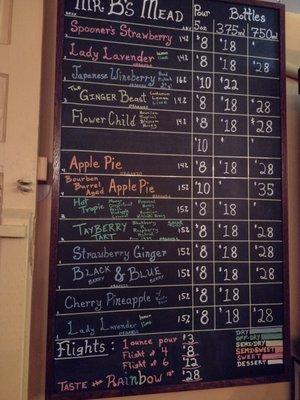 MR. B'S MEAD Pour 5oz Bottles 375ml 750ml
Spooner's Strawberry 14% $8 $18
Lady Lavender 14% $8 $18 $28
Japanese Wineberry 16% $10 $22
The GINGER BEAST 14% $8 $18 $28
Flower Child 14% $8 $18 $28
$10
Apple Pie 14% $8 $18 $28
Bourbon Barrel Aged Apple Pie 15% $10 $35
Hot Tropic 15% $8 $18
TAYBERRY TART 15% $8 $18 $28
Strawberry Ginger 15% $8 $18 $28
BLACK & BLUE 15% $8 $18 $28
Cherry Pineapple 15% $8 $18
Lady Lavender 15% $8 $18 $28
Flights: 1 ounce pour $3
Flight of 4 $8
Flight of 6 $12
TASTE THE RAINBOW $28
DRY
OFF-DRY
SEMI-DRY
SEMI-SWEET
SWEET
DESSERT